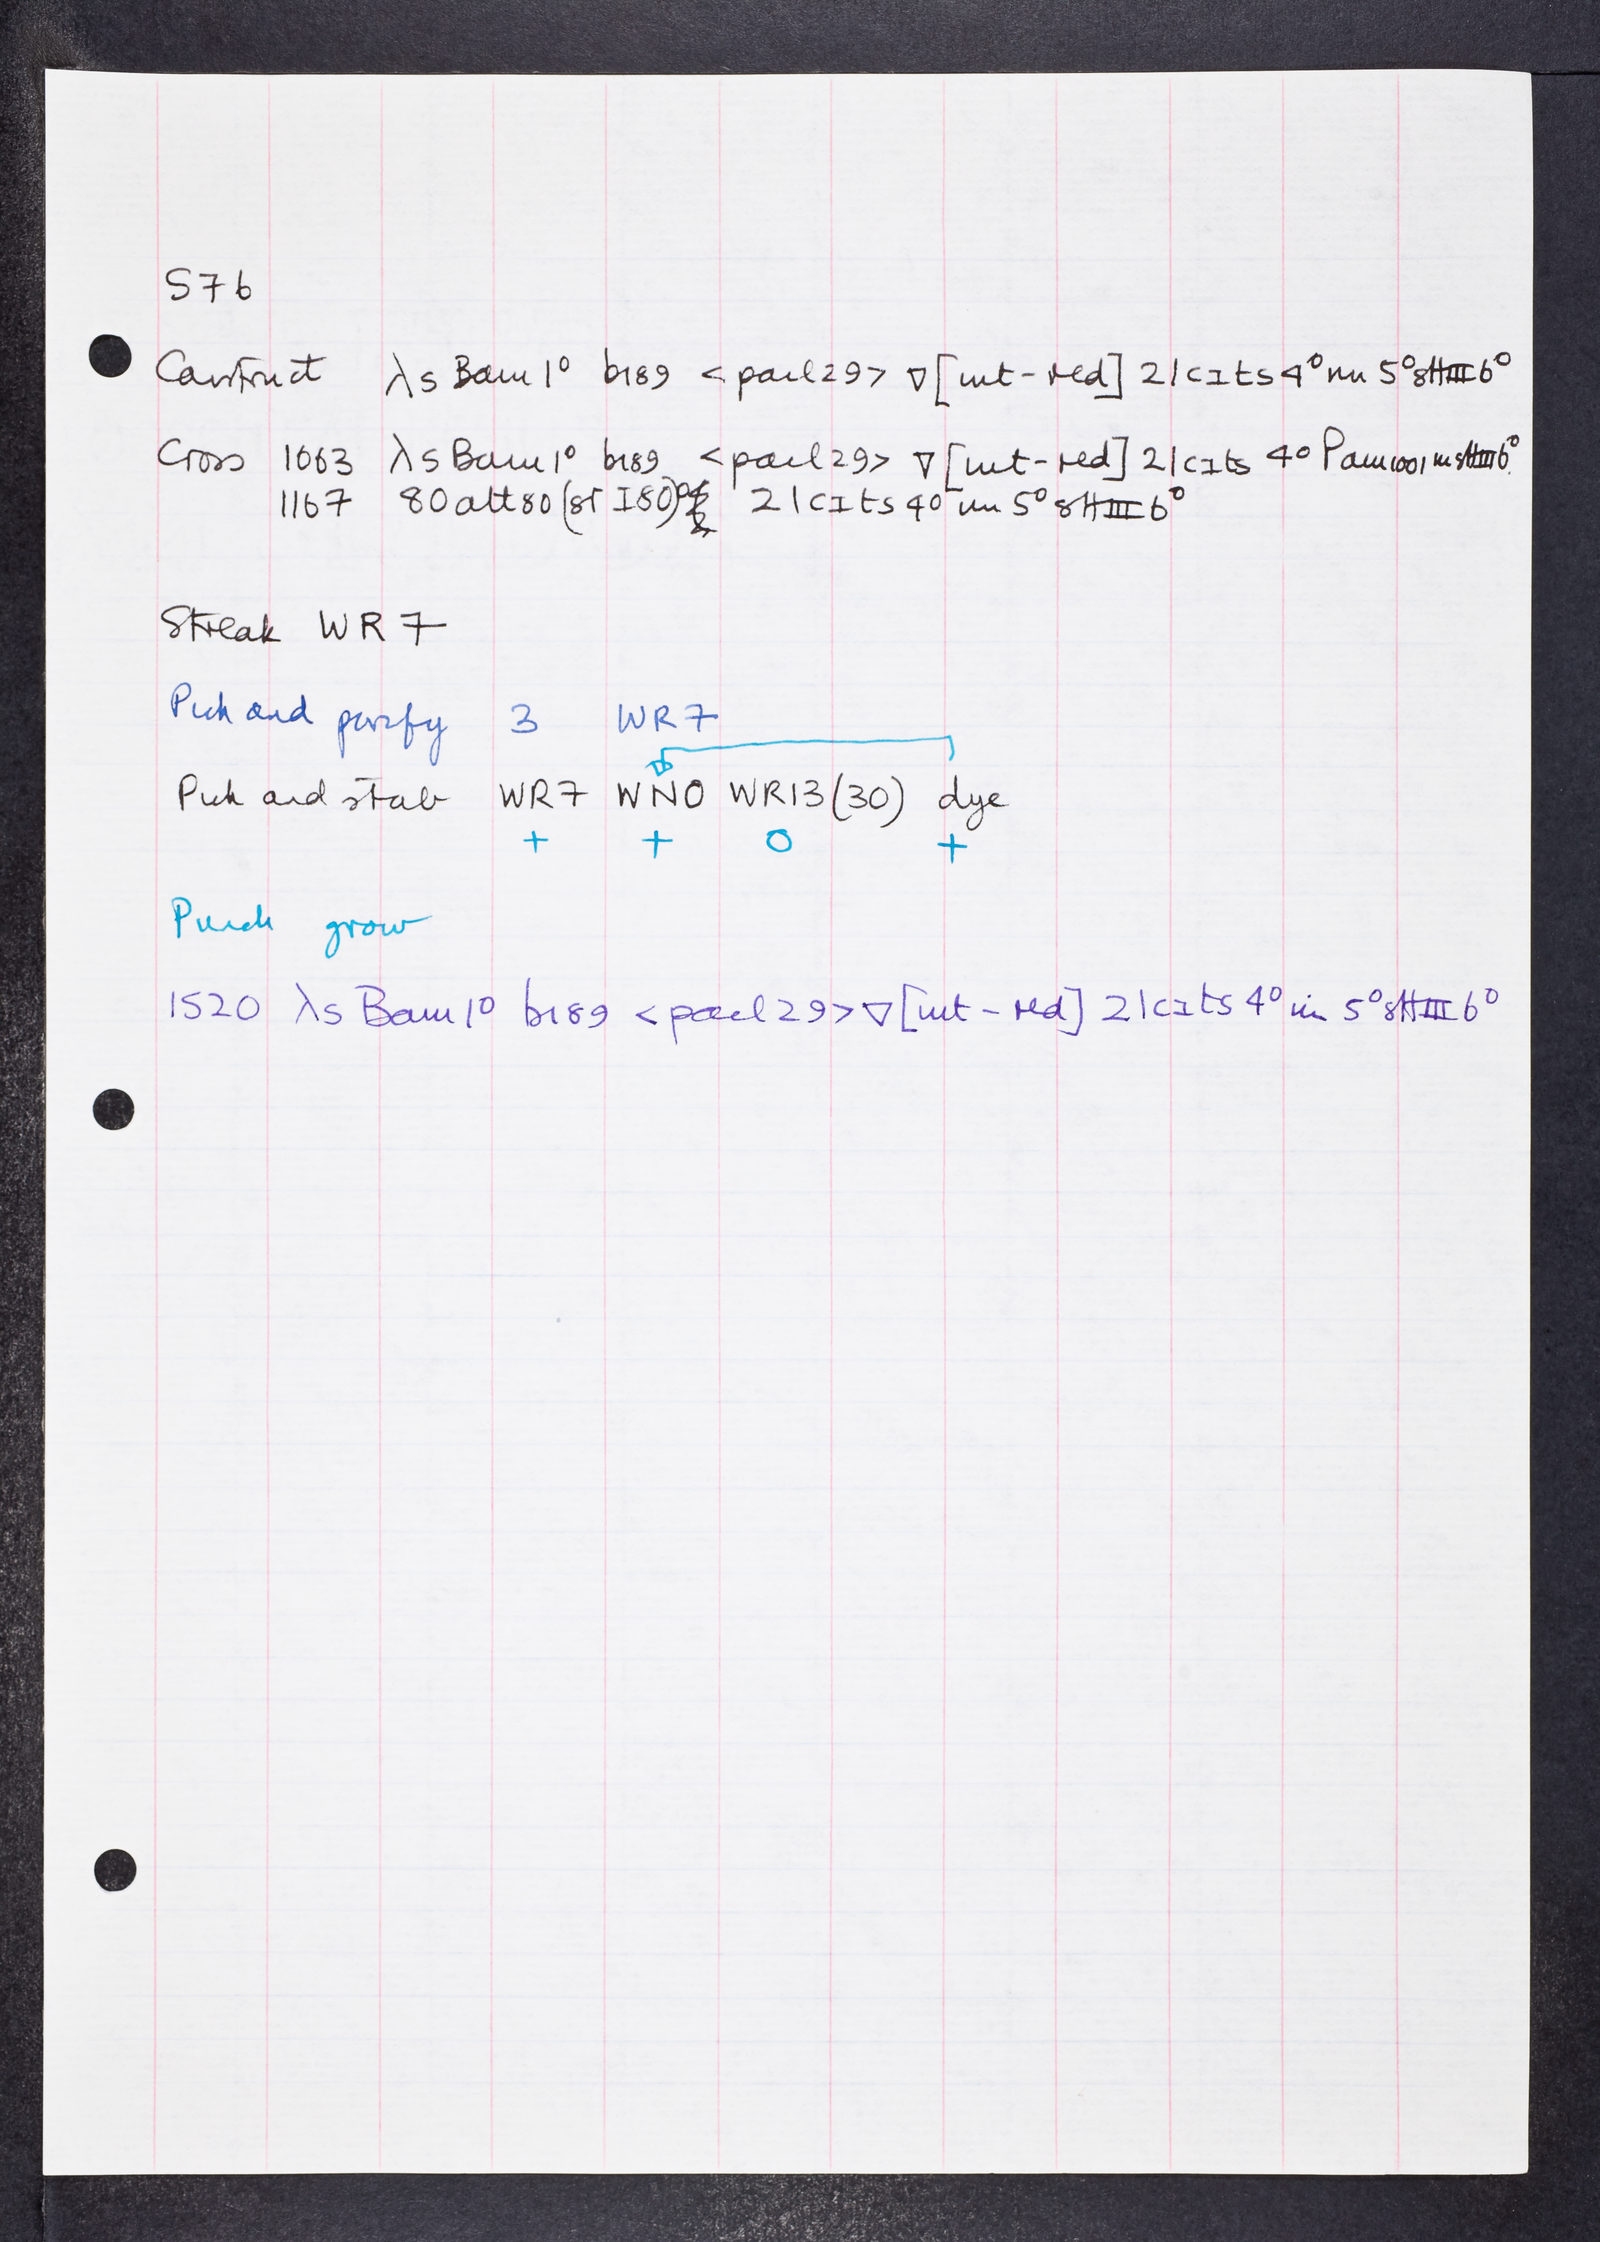 S76
Construct λs Bam 1° b189 <pael 29> ∇[int-red] 21 cIts 4° nin 5° sHIII 6°
Cross 1063 λs Bam 1° b189 <pael 29> ∇[int-red] 21 cIts 4° Pam1001 in sHIII 6°
1167 80att80 (sr I80)° 21 cIts 4° nin 5° sHIII 6°
Streak WR7
Pick and purify 3 WR7
Pick and stab WR7 WN0 WR13(30) dye
+ + O +
Pick grow
1520 λs Bam 1° b189 <pael 29> ∇[int-red] 21 cIts 4° nin 5° sHIII 6°